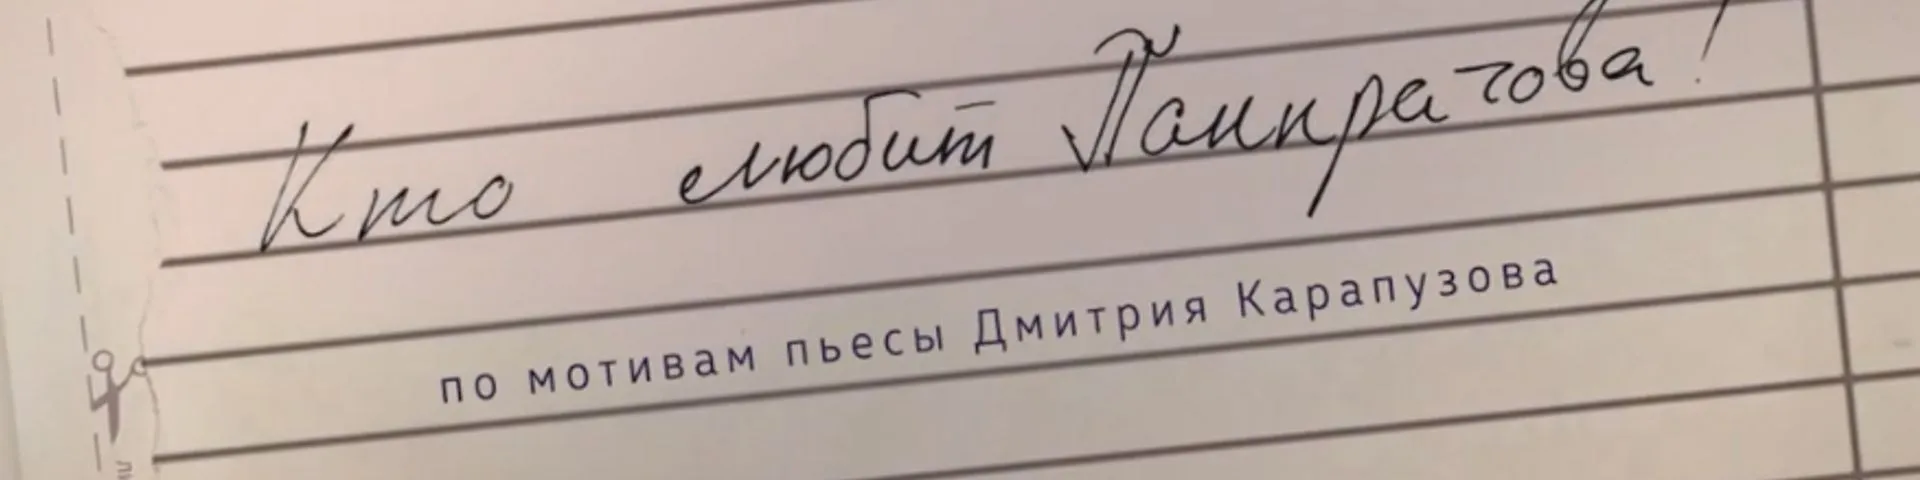 Кто любит Панкратова!
по мотивам пьесы Дмитрия Карапузова